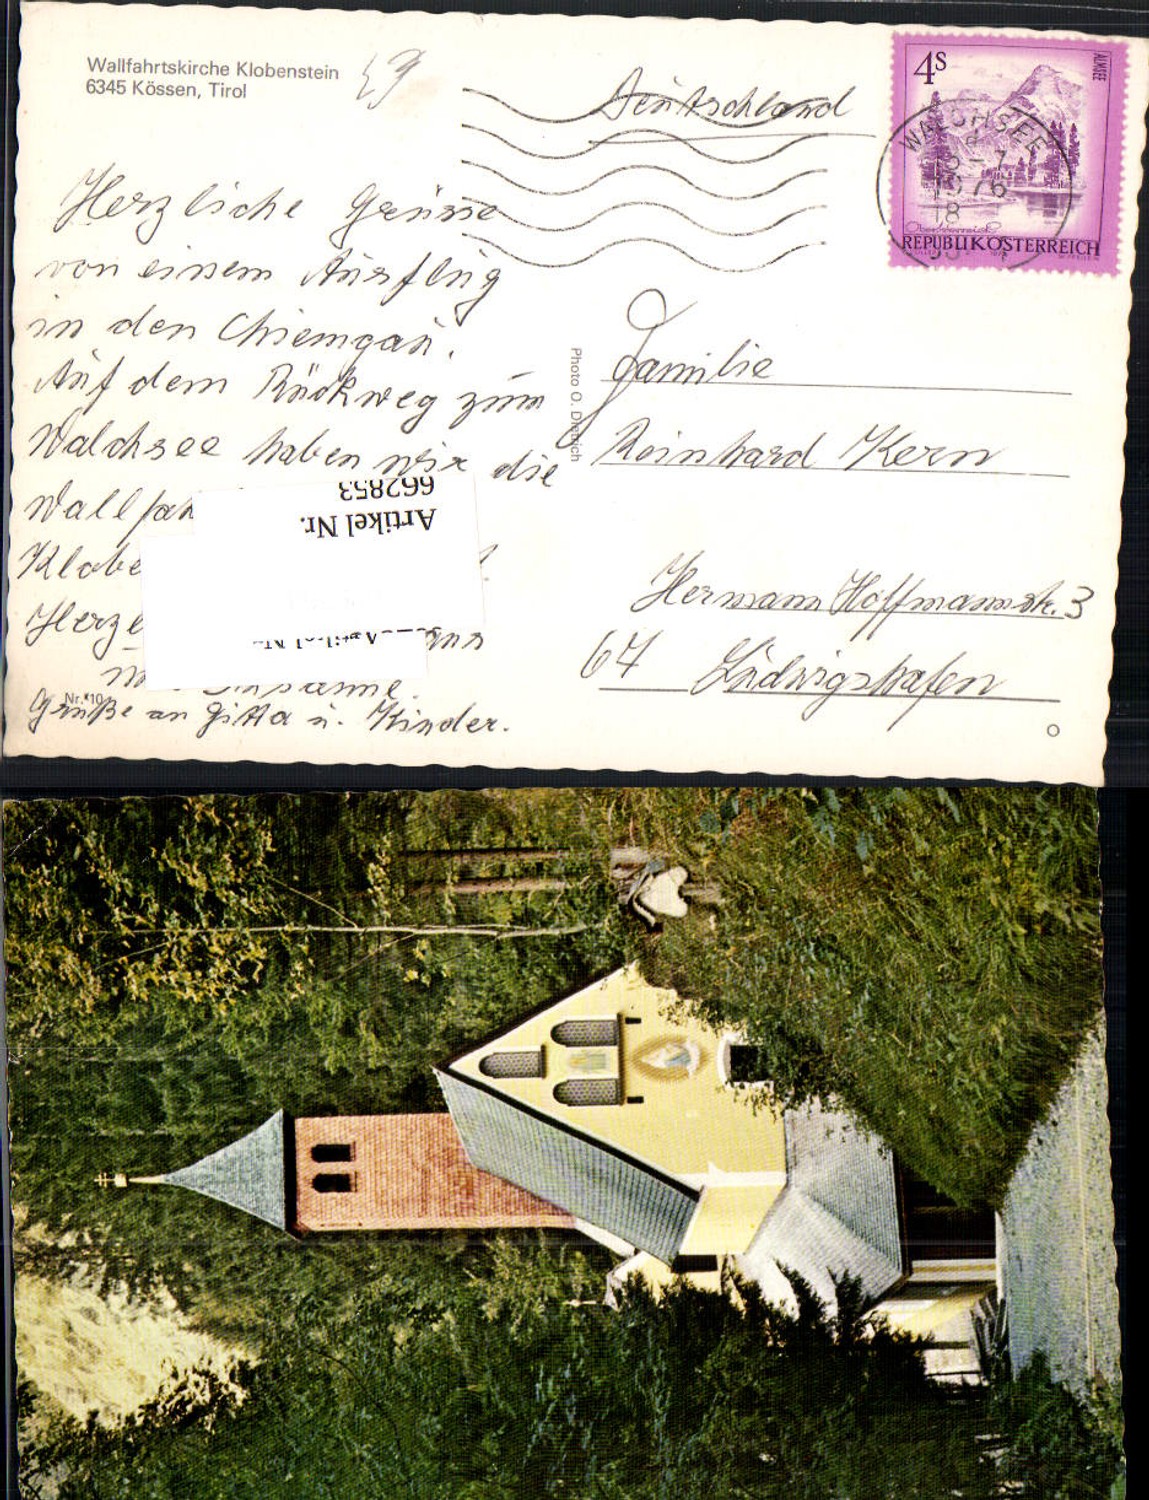 Wallfahrtskirche Klobenstein
6345 Kössen, Tirol
Deutschland
4S
ALMSEE
WALCHSEE
1976
18
REPUBLIK ÖSTERREICH
Herzliche Grüsse
von einem Ausflug
in den Chiemgau.
Auf dem Rückweg zum
Walchsee haben wir die
Wallfah
Klobe
Herz
Grüße an Gitta u. Kinder.
Nr. 10
Artikel Nr.
662853
Photo O. Dietrich
Familie
Reinhard Kern
Hermann Hoffmannstr. 3
67 Ludwigshafen